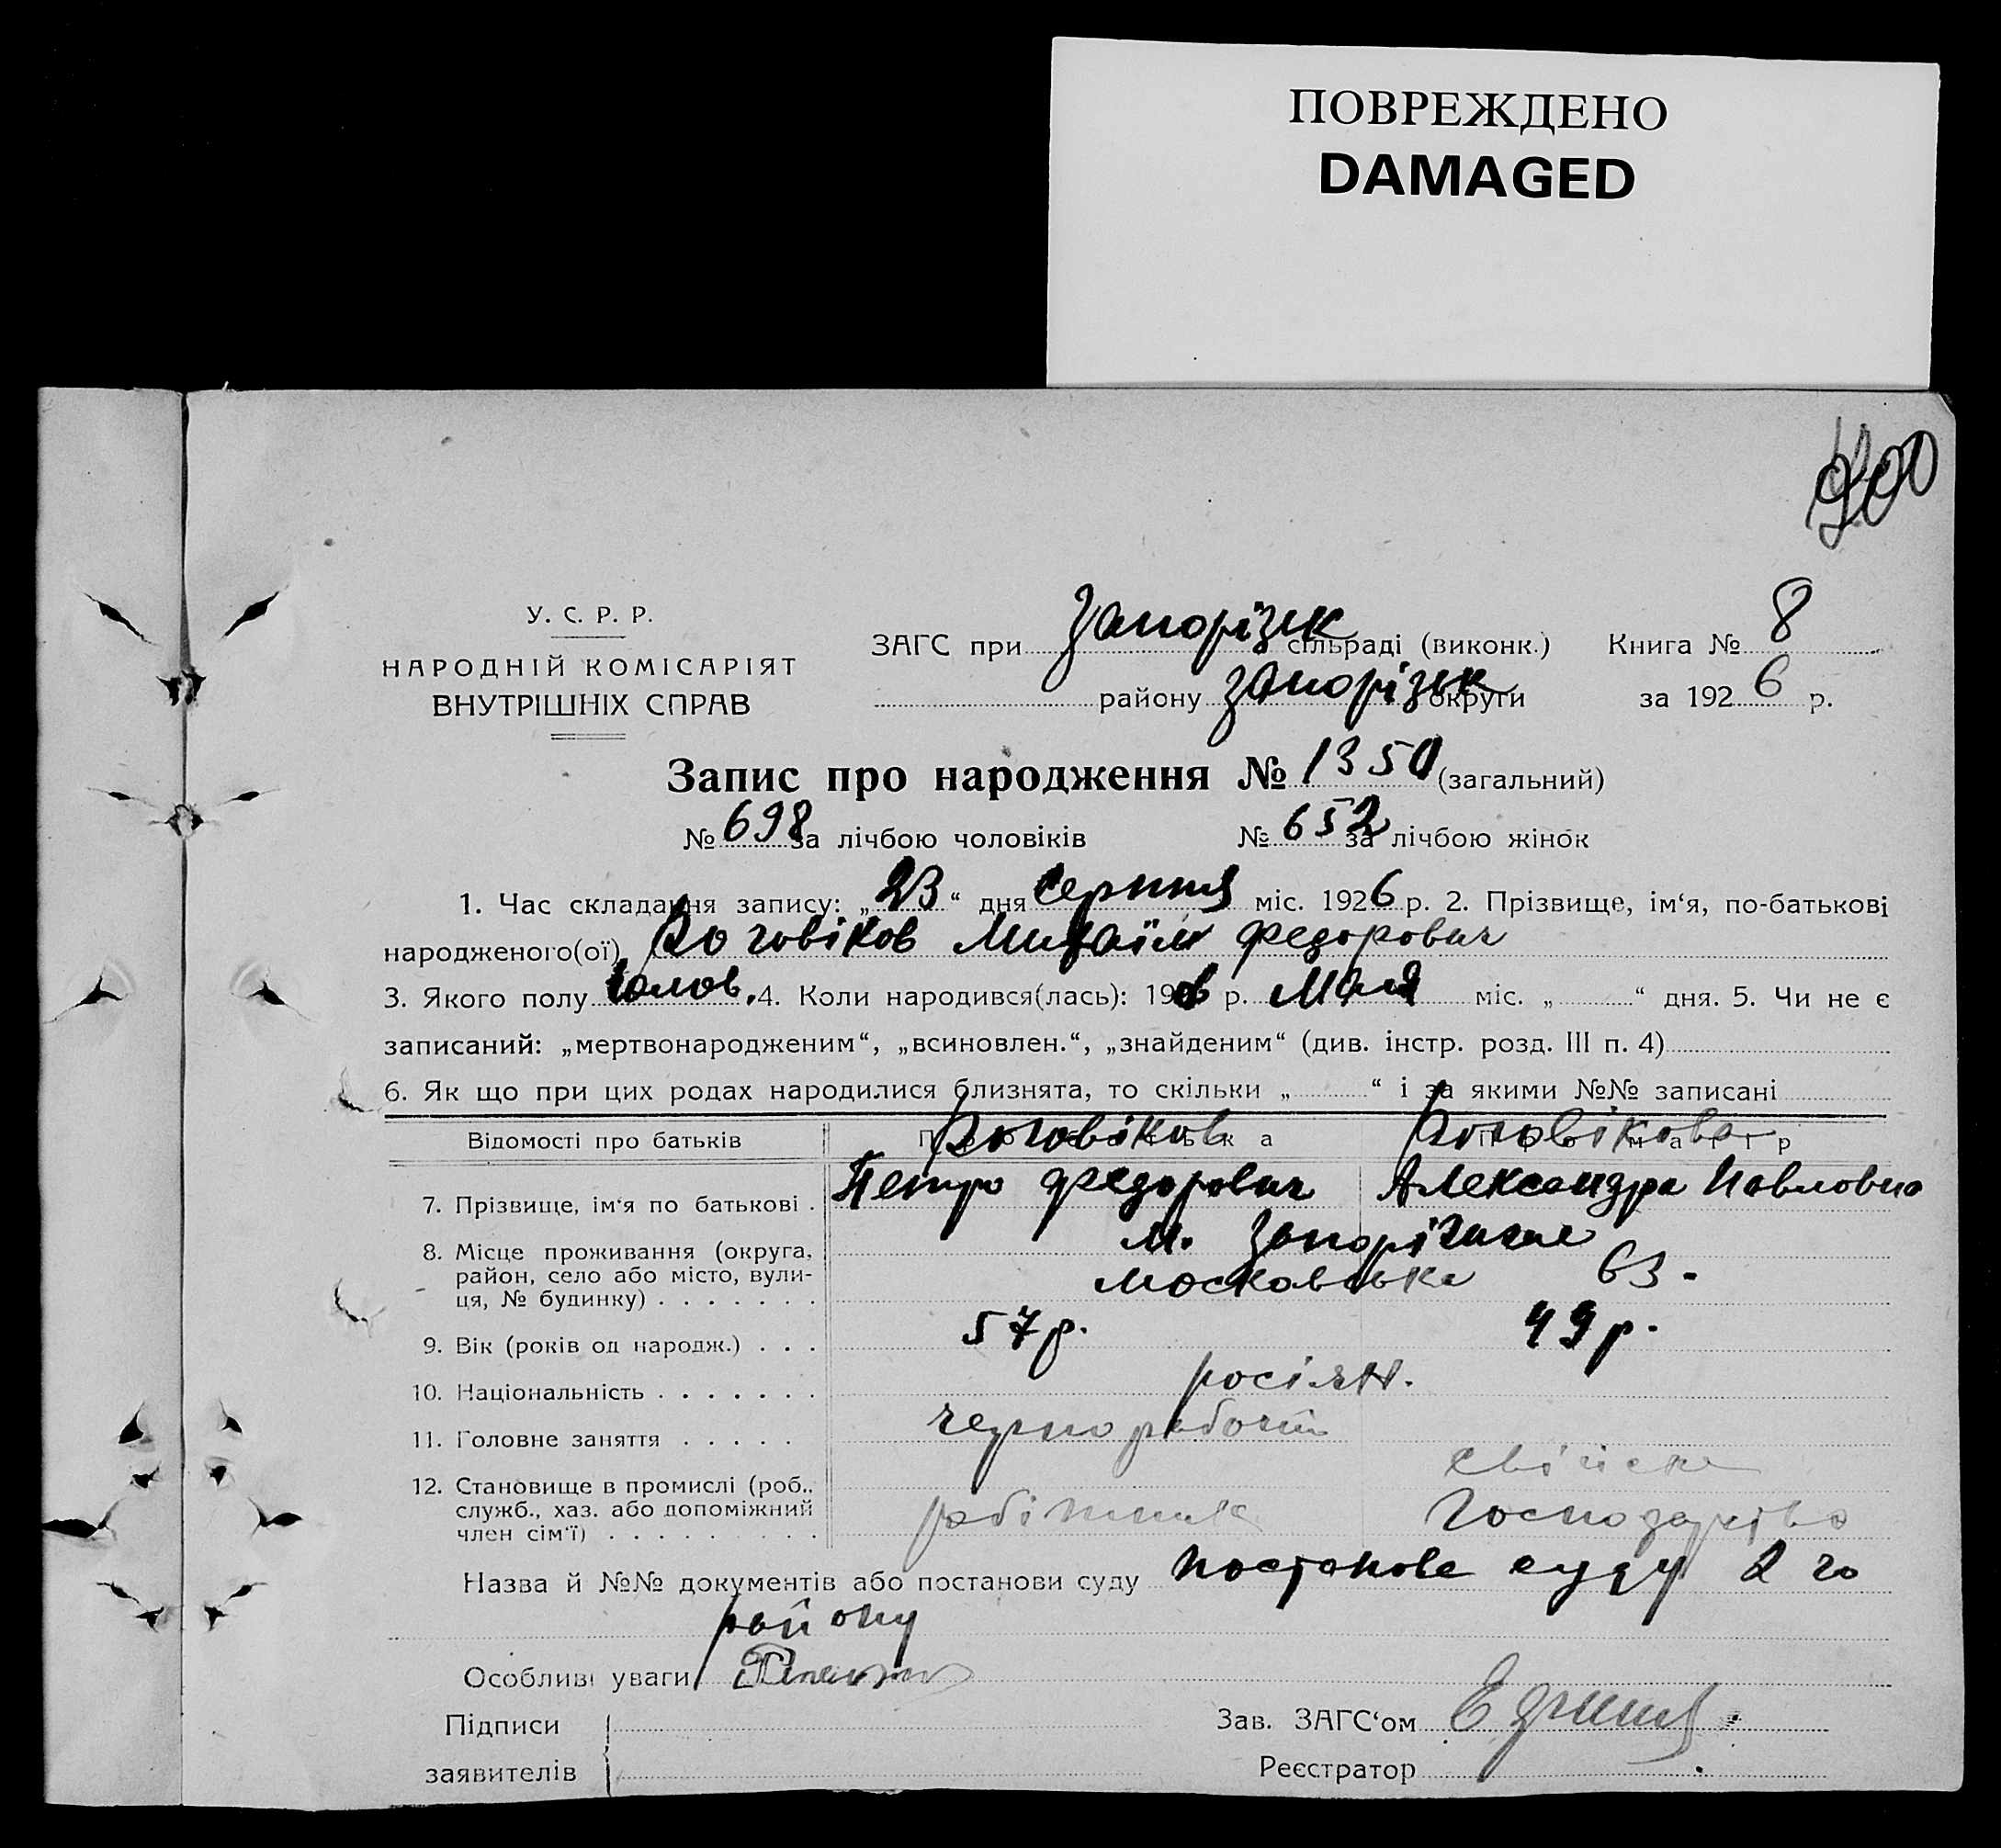 ПОВРЕЖДЕНО
DAMAGED
У. С. Р. Р.
НАРОДНІЙ КОМІСАРІЯТ
ВНУТРІШНІХ СПРАВ
ЗАГС при Запорізк сільраді (виконк.) Книга № 8
району Запорізьк округи за 1926 р.
Запис про народження № 1350 (загальний)
№ 698 за лічбою чоловіків № 652 за лічбою жінок
1. Час складання запису: „23“ дня серпня міс. 1926 р. 2. Прізвище, ім‘я, по-батькові
народженого(ої) Михаїл Федорович
3. Якого полу чолов. 4. Коли народився(лась): 19 р. Мая міс. „ “ дня. 5. Чи не є
записаний: „мертвонародженим“, „всиновлен.“, „знайденим“ (див. інстр. розд. III п. 4)
6. Як що при цих родах народилися близнята, то скільки „ “ і за якими №№ записані
Відомості про батьків
7. Прізвище, ім‘я по батькові . Петро Федорович Александра Павловна
8. Місце проживання (округа, м. Запоріжжє
район, село або місто, вули- Московська 63.
ця, № будинку) . . . . . . .
9. Вік (років од народж.) . . . 57 р. 49 р.
10. Національність . . . . . . . росіян.
11. Головне заняття . . . . . чернорабочий
свійске
12. Становище в промислі (роб., робітник господарство
служб., хаз. або допоміжний
член сім‘ї) . . . . . . . . .
Назва й №№ документів або постанови суду постанова суду 2 го
району
Особливі уваги
Підписи Зав. ЗАГС‘ом
заявителів Реєстратор